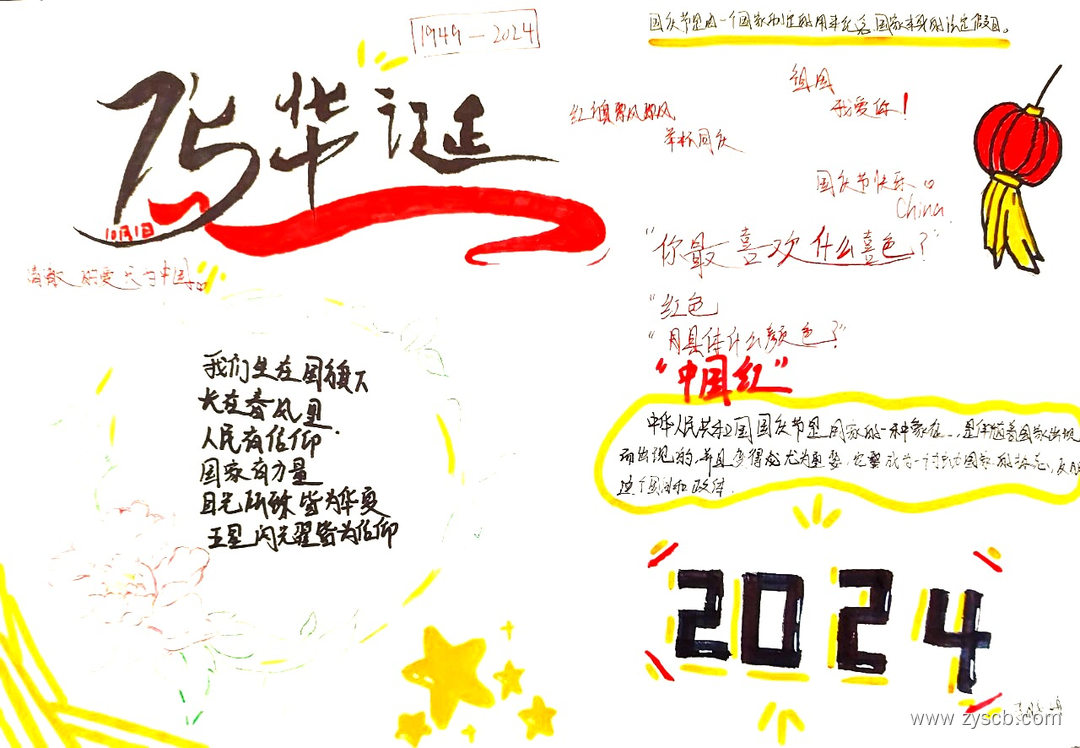 1949—2024
75华诞
10月1日
国庆节是由一个国家制定的用来纪念国家本身的法定假日。
祖国
我爱你！
举杯同庆
国庆节快乐
China
"你最喜欢什么喜色？"
"红色"
"具体什么颜色？"
"中国红"
中国
我们坐在国旗下
长在春风里
人民有信仰
国家有力量
目光所 皆为华夏
五星闪光 皆为信仰
中华人民共和国国庆节是国家的一种象征，是伴随着国家出现
而出现的，并且变得尤为重要，它 成为一 国家的标志，反
这个国 和政体.
2024
www.zyscb.com